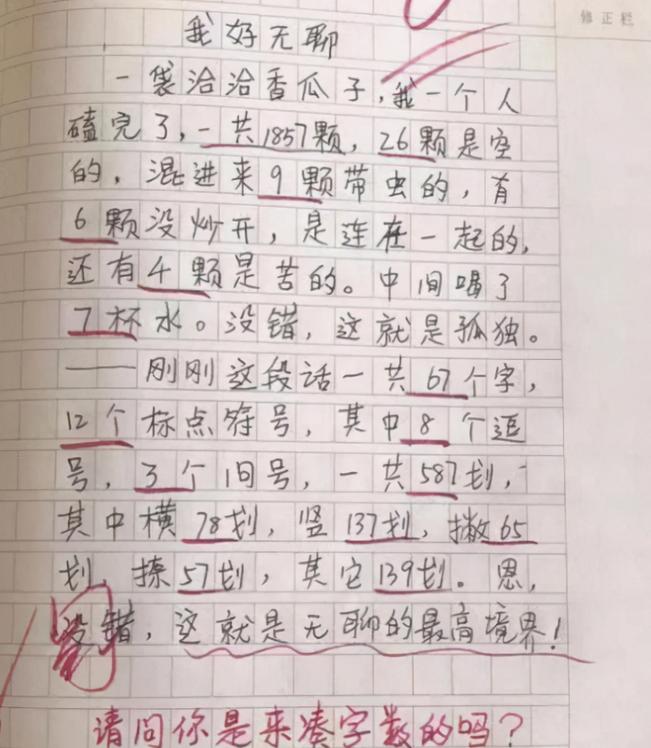 修正栏
我好无聊
一袋洽洽香瓜子,我一个人
磕完了,一共1857颗,26颗是空
的,混进来9颗带虫的,有
6颗没炒开,是连在一起的,
还有4颗是苦的。中间喝了
7杯水。没错,这就是孤独。
——刚刚这段话一共67个字,
12个标点符号,其中8个逗
号,3个问号,一共587划,
其中横78划,竖137划,撇65
划,捺57划,其它139划。恩,
没错,这就是无聊的最高境界!
请问你是来凑字数的吗?